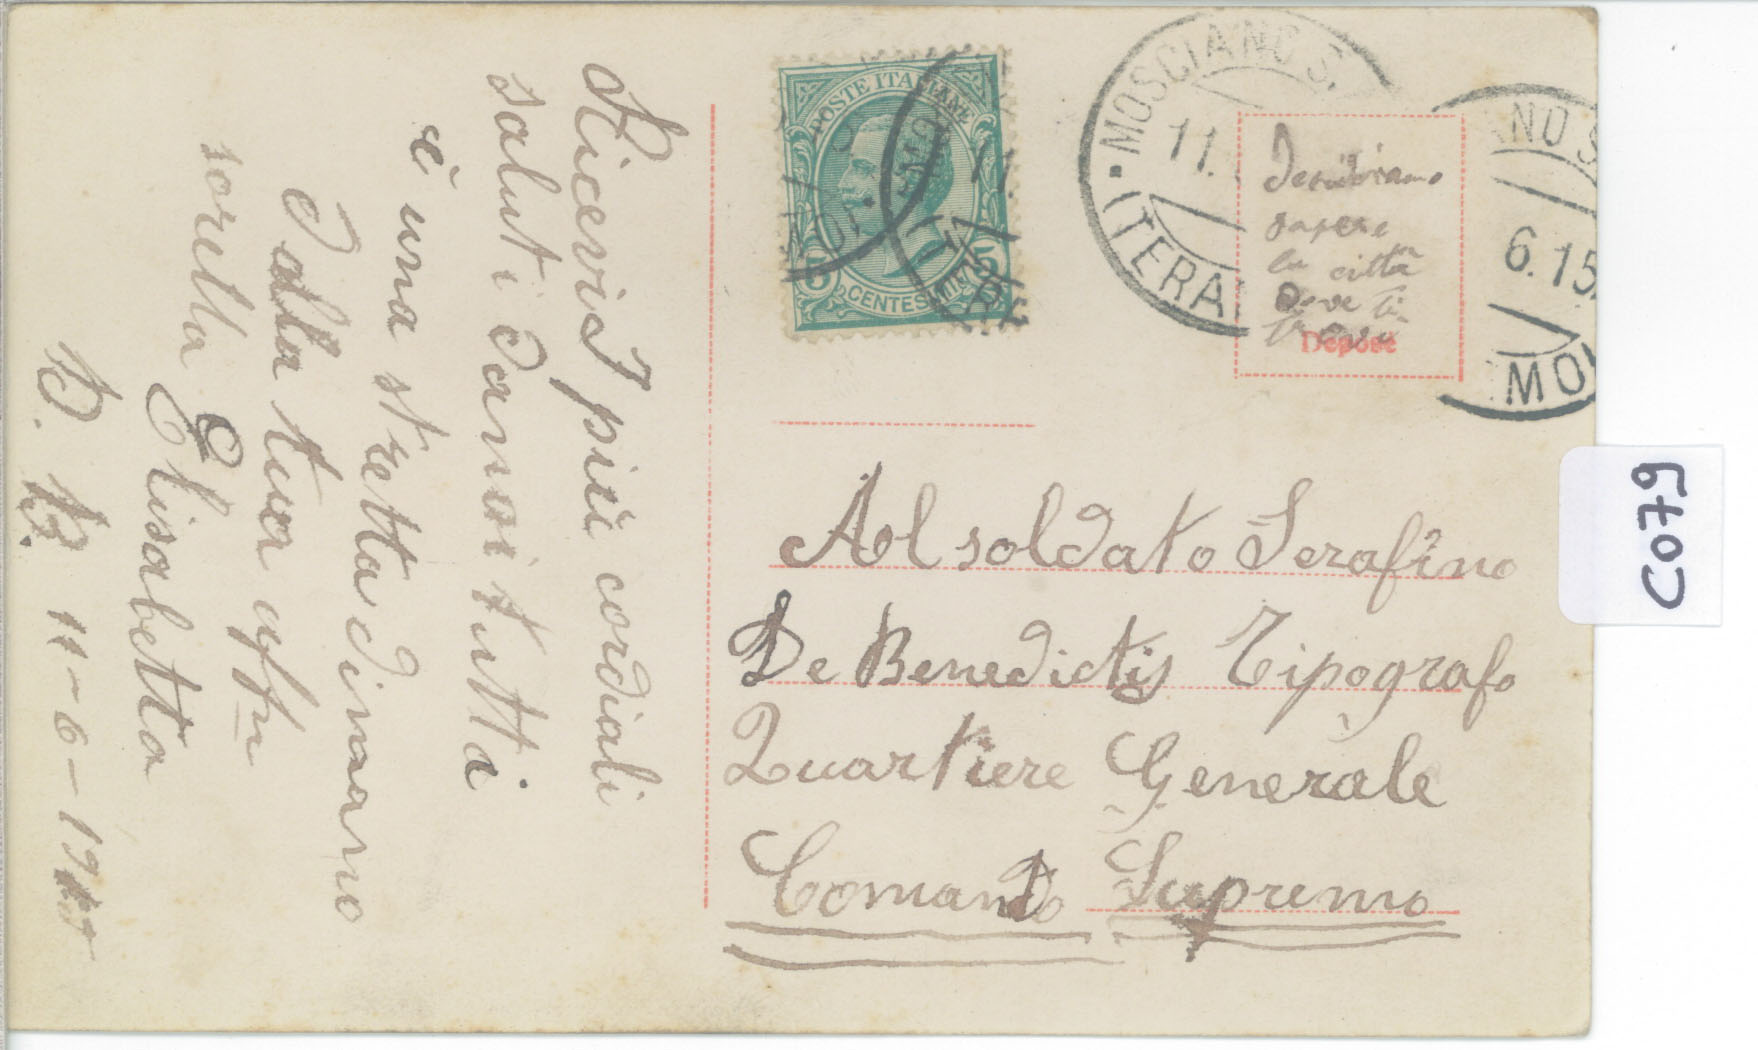 Ricevi i più cordiali
saluti da noi tutti
e una stretta di mano
Dalla tua aff.ma
sorella Elisabetta
11-6-19
POSTE ITALIANE
5 CENTES 5
MOSCIANO S.
11.
(TERA
ANO S
6.15
MO
Desideriamo
sapere
la città
Dove ti
trovi
Déposé
Al soldato Serafino
De Benedictis Tipografo
Quartiere Generale
Comando Supremo
C079